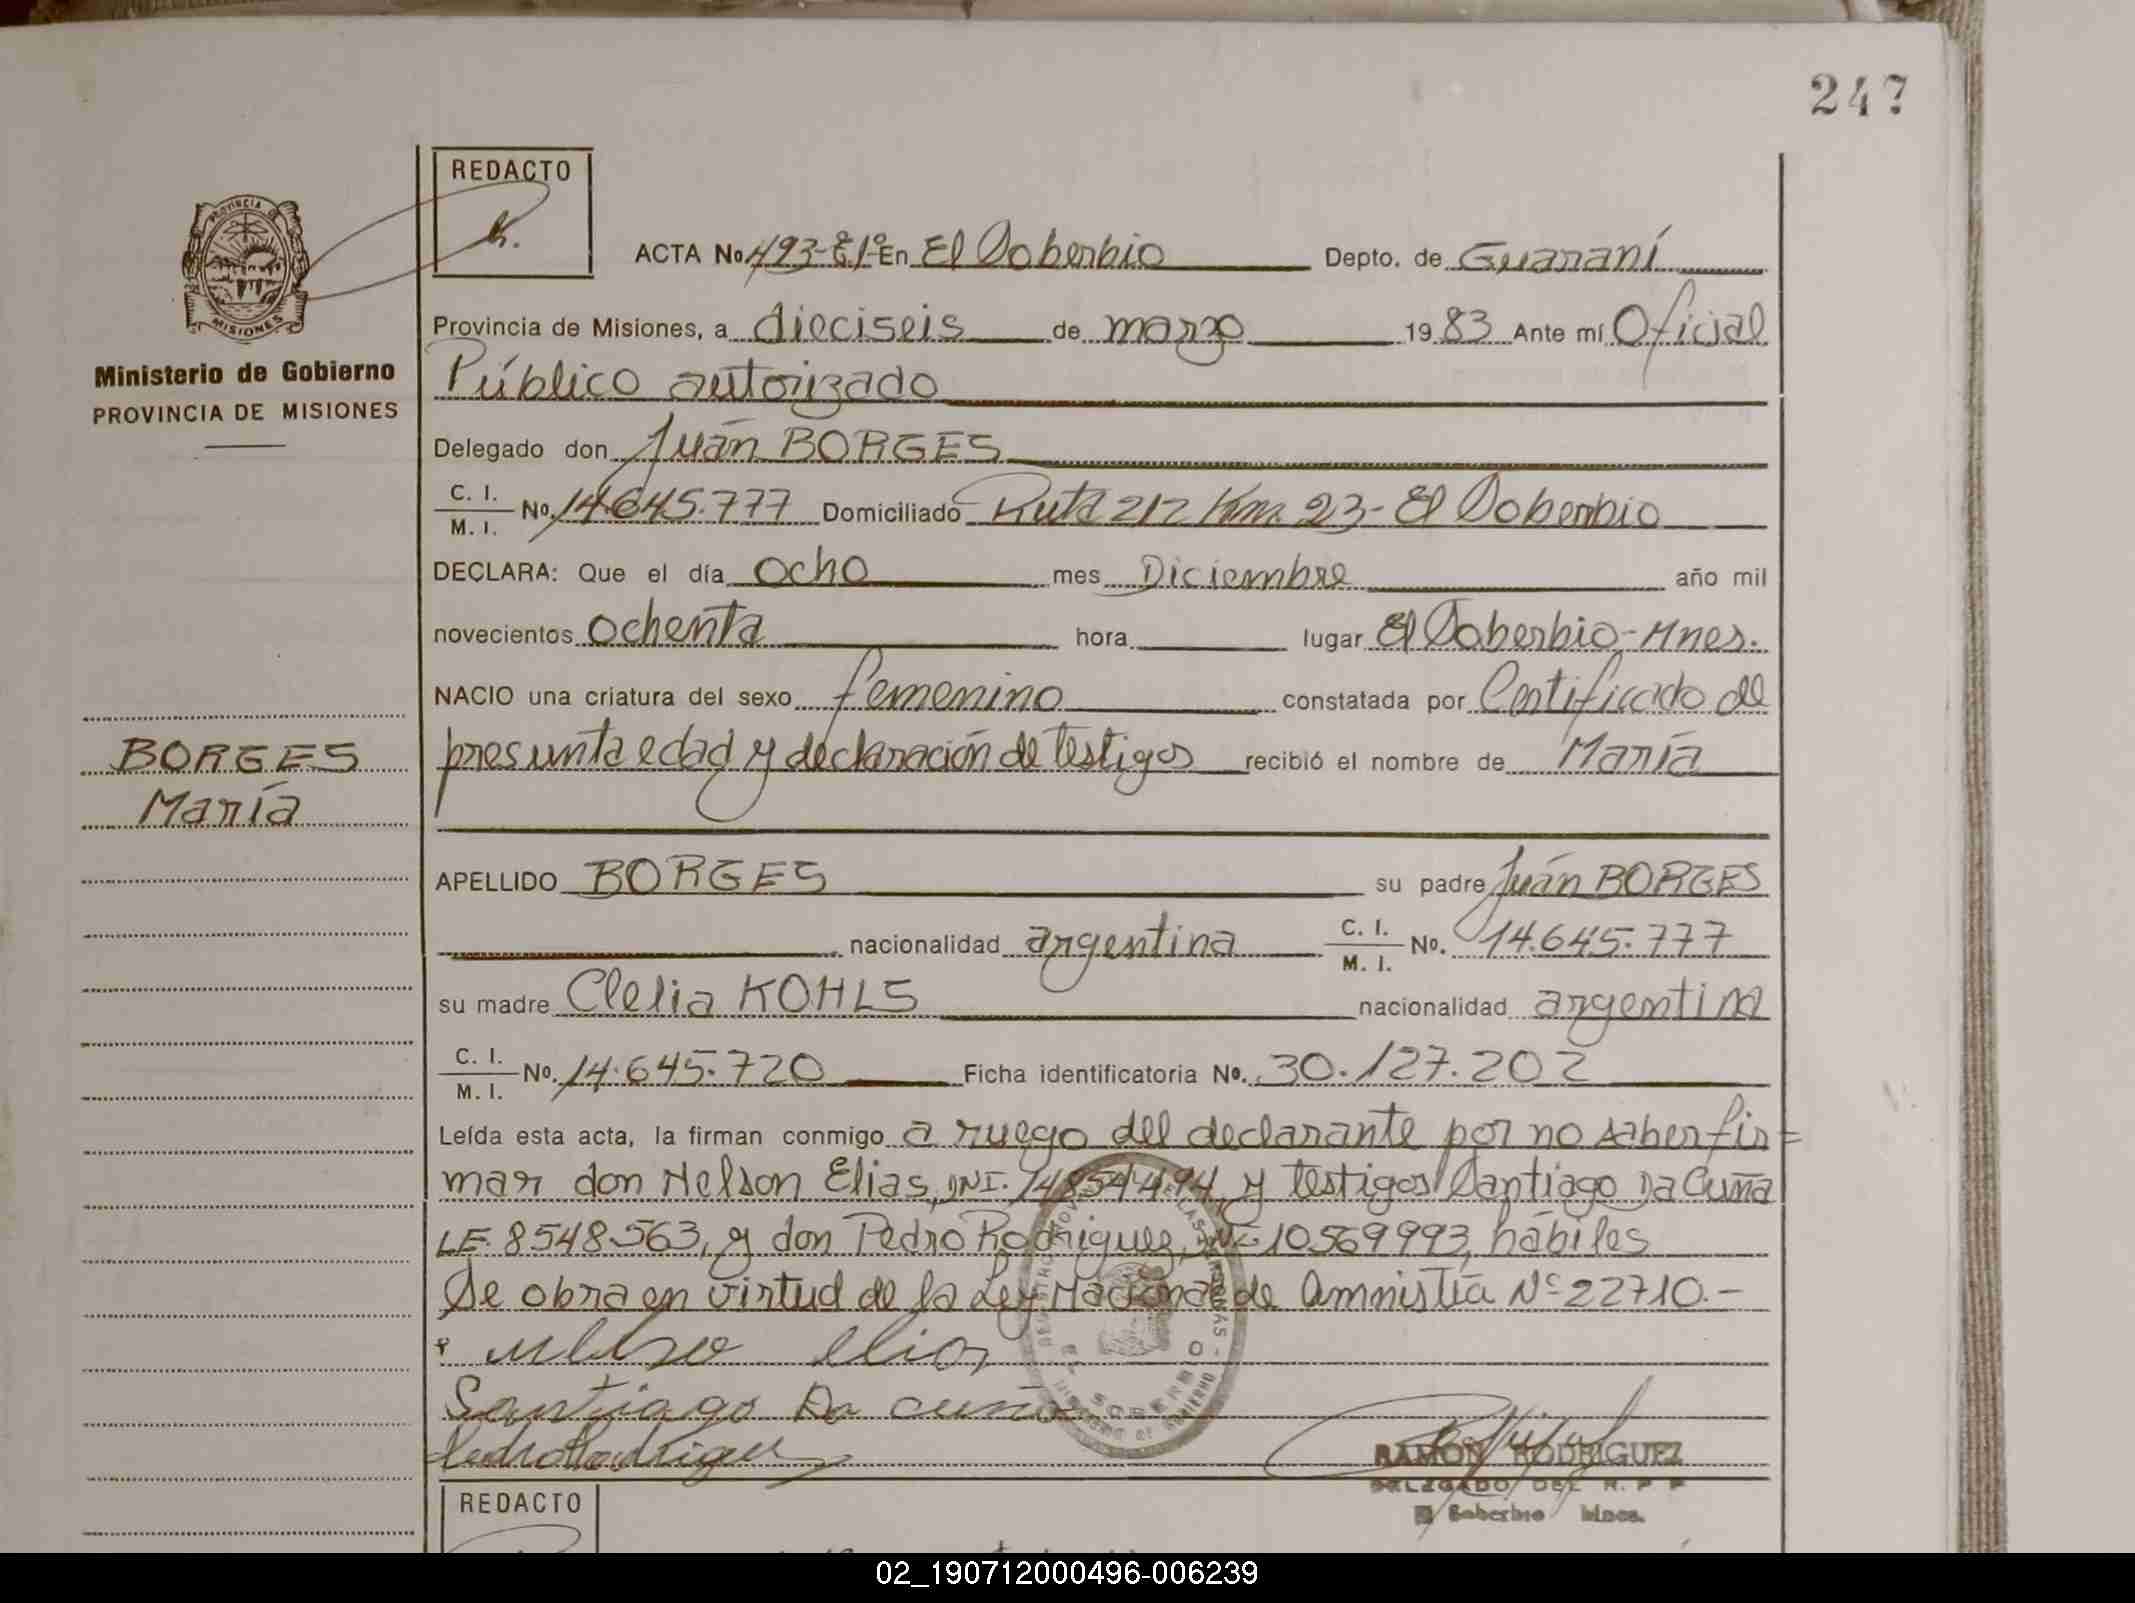 247
REDACTO
PROVINCIA DE
MISIONES
ACTA No 493-E.1º En El Soberbio Depto. de Guaraní
Provincia de Misiones, a dieciseis de marzo 1983 Ante mí Oficial
Ministerio de Gobierno
PROVINCIA DE MISIONES
Público autorizado
Delegado don Juán BORGES
C. I.
M. I. No. 14.645.777 Domiciliado Ruta 212 Km. 23- El Soberbio
DECLARA: Que el día ocho mes Diciembre año mil
novecientos ochenta hora lugar El Soberbio-Mnes.
NACIO una criatura del sexo femenino constatada por Certificado de
BORGES
María
presunta edad y declaración de testigos recibió el nombre de María
APELLIDO BORGES su padre Juán BORGES
nacionalidad argentina C. I.
M. I. No. 14.645.777
su madre Clelia KOHLS nacionalidad argentina
C. I.
M. I. No. 14.645.720 Ficha identificatoria No. 30.127.202
Leída esta acta, la firman conmigo a ruego del declarante por no saber fir=
mar don Nelson Elias, DNI. 14854494, y testigos Santiago Da Cuña
LE. 8548563, y don Pedro Rodriguez, 10569993, hábiles
Se obra en virtud de la Ley Nacional de Amnistía Nº 22710.-
Elias
Santiago Da cuña
Pedro Rodriguez
EL SOBERBIO
RAMON RODRIGUEZ
DELEGADO DEL R. P. P
El Soberbio Mnes.
REDACTO
02_190712000496-006239